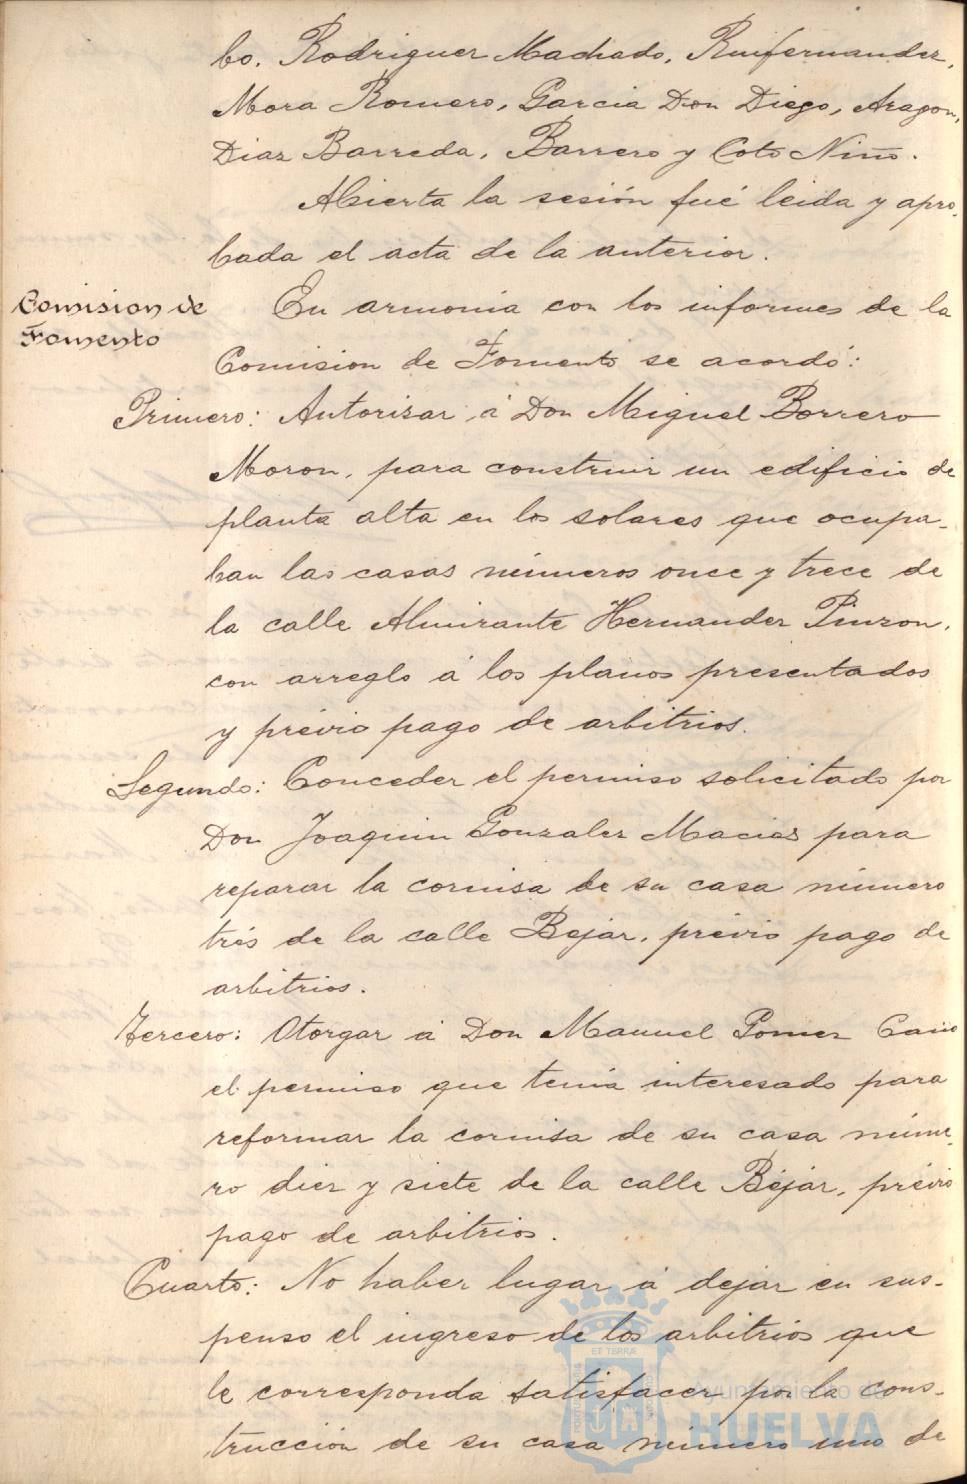 bo. Rodriguez Machado, Ruifernandez,
Mora Romero, Garcia Don Diego, Aragon,
Diaz Barreda, Barrero y Coto Niño.
Abierta la sesión fué leida y apro-
bada el acta de la anterior.
Comision de
Fomento
En armonia con los informes de la
Comision de Fomento se acordó:
Primero: Autorizar á Don Miguel Borrero
Moron, para construir un edificio de
planta alta en los solares que ocupa-
ban las casas números once y trece de
la calle Almirante Hernandez Pinzon,
con arreglo á los planos presentados
y prévio pago de arbitrios.
Segundo: Conceder el permiso solicitado por
Don Joaquin Gonzalez Macias para
reparar la cornisa de su casa número
trés de la calle Bejar, prévio pago de
arbitrios.
Tercero: Otorgar á Don Manuel Gomez Cano
el permiso que tenia interesado para
reformar la cornisa de su casa núme-
ro diez y siete de la calle Béjar, prévio
pago de arbitrios.
Cuarto: No haber lugar á dejar en sus-
penso el ingreso de los arbitrios que
le corresponda satisfacer por la cons-
trucción de su casa número uno de
ET TERRÆ
Ayuntamiento de
HUELVA